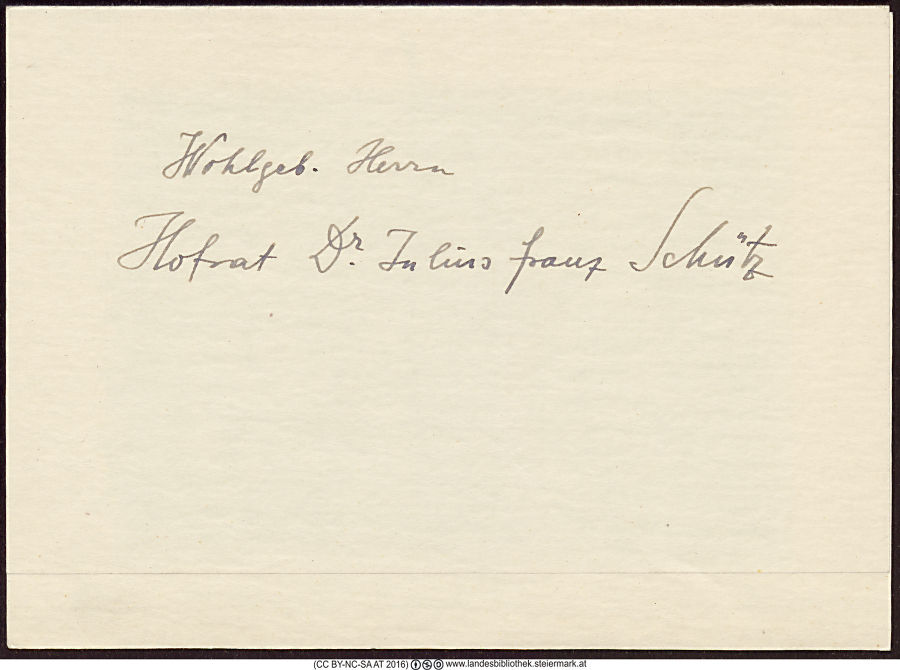 Wohlgeb. Herrn
Hofrat Dr. Julius Franz Schütz
(CC BY-NC-SA AT 2016) www.landesbibliothek.steiermark.at